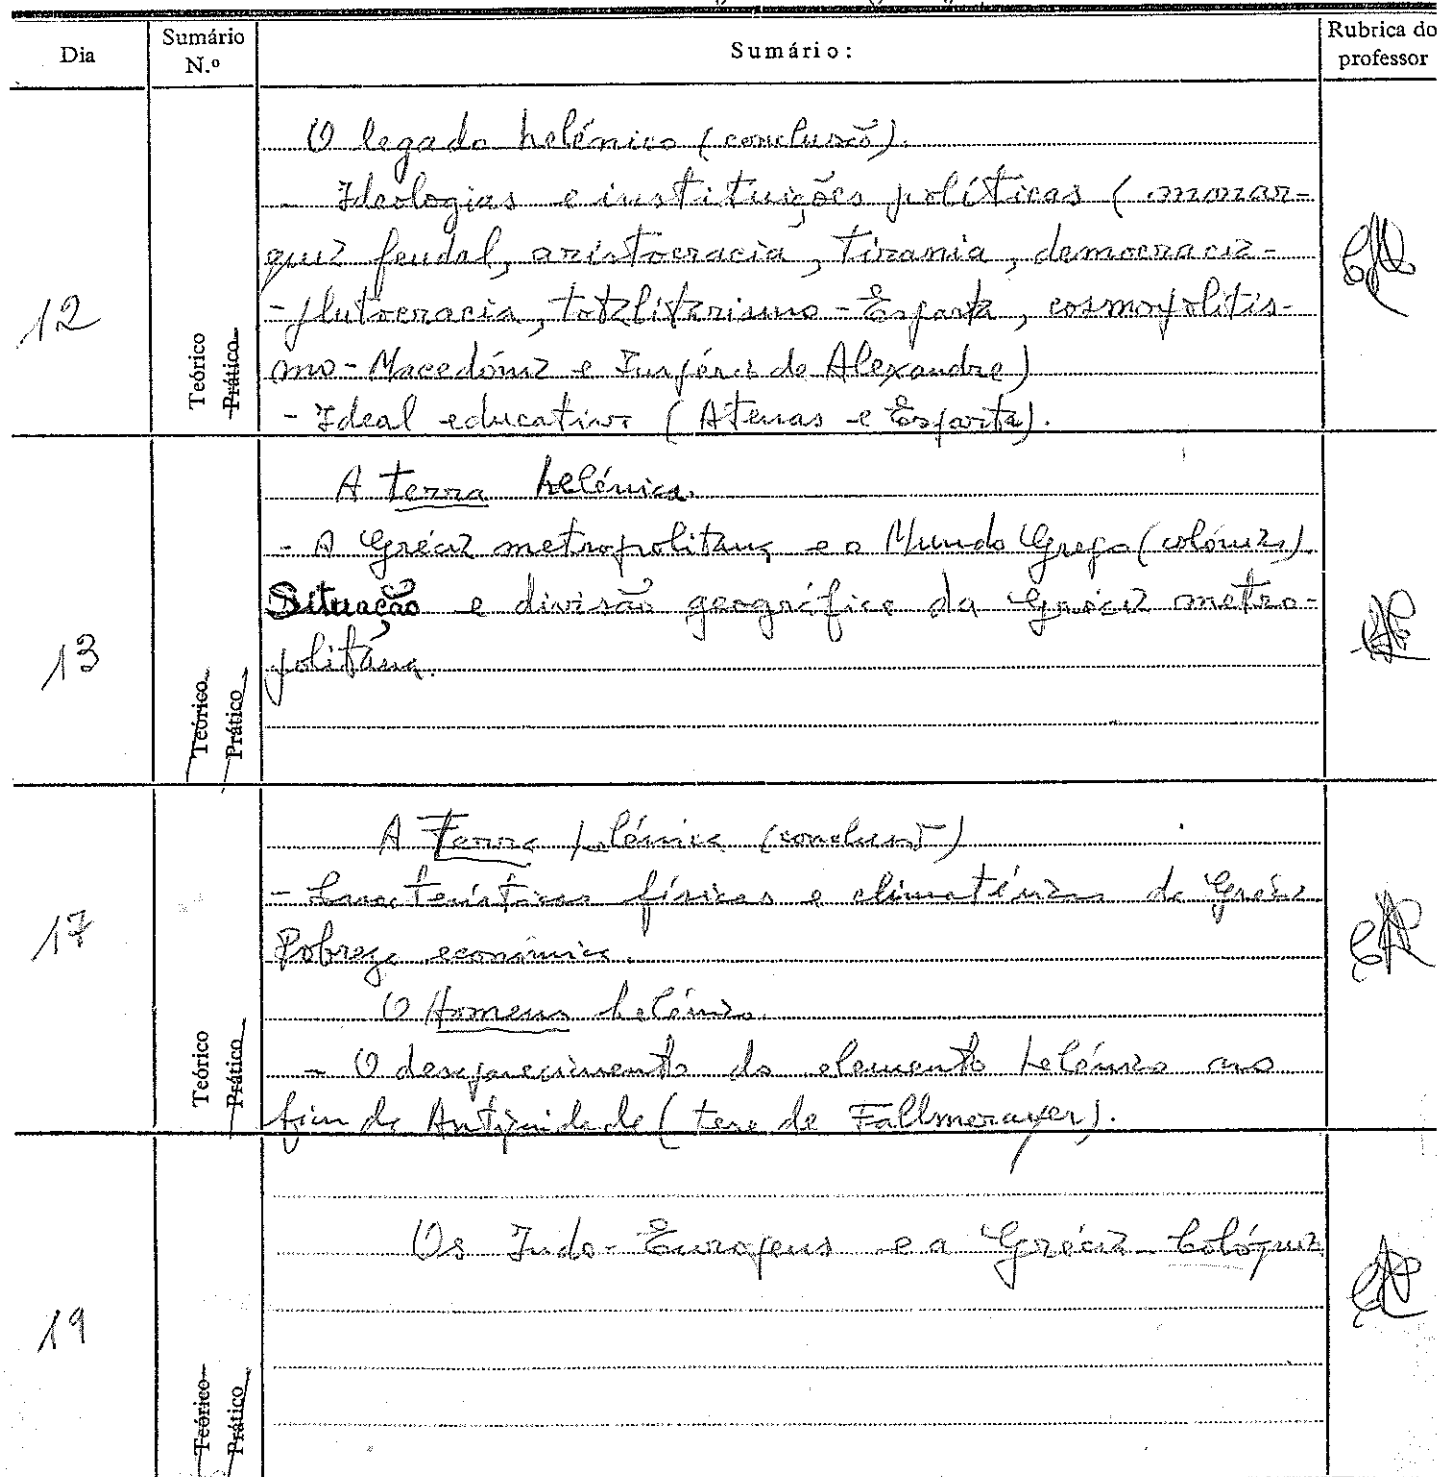 Dia
Sumário N.º
Sumário:
Rubrica do professor
12
Teórico
Prático
O legado helénico (conclusão).
- Ideologias e instituições políticas (monar-
quia feudal, aristocracia, tirania, democracia-
-plutocracia, totalitarismo-Esparta, cosmopolitis-
mo-Macedónia e Império de Alexandre)
- Ideal educativo (Atenas e Esparta).
13
Teórico
Prático
A terra helénica.
- A Grécia metropolitana e o Mundo Grego (colónias).
Situação e divisão geográfica da Grécia metro-
politana.
17
Teórico
Prático
A Terra helénica (conclusão)
- Características físicas e climatéricas da Grécia
Pobreza económica.
O Homem helénico.
- O desaparecimento do elemento helénico no
fim da Antiguidade (tese de Fallmerayer).
19
Teórico
Prático
Os Indo-Europeus e a Grécia - Colóquio